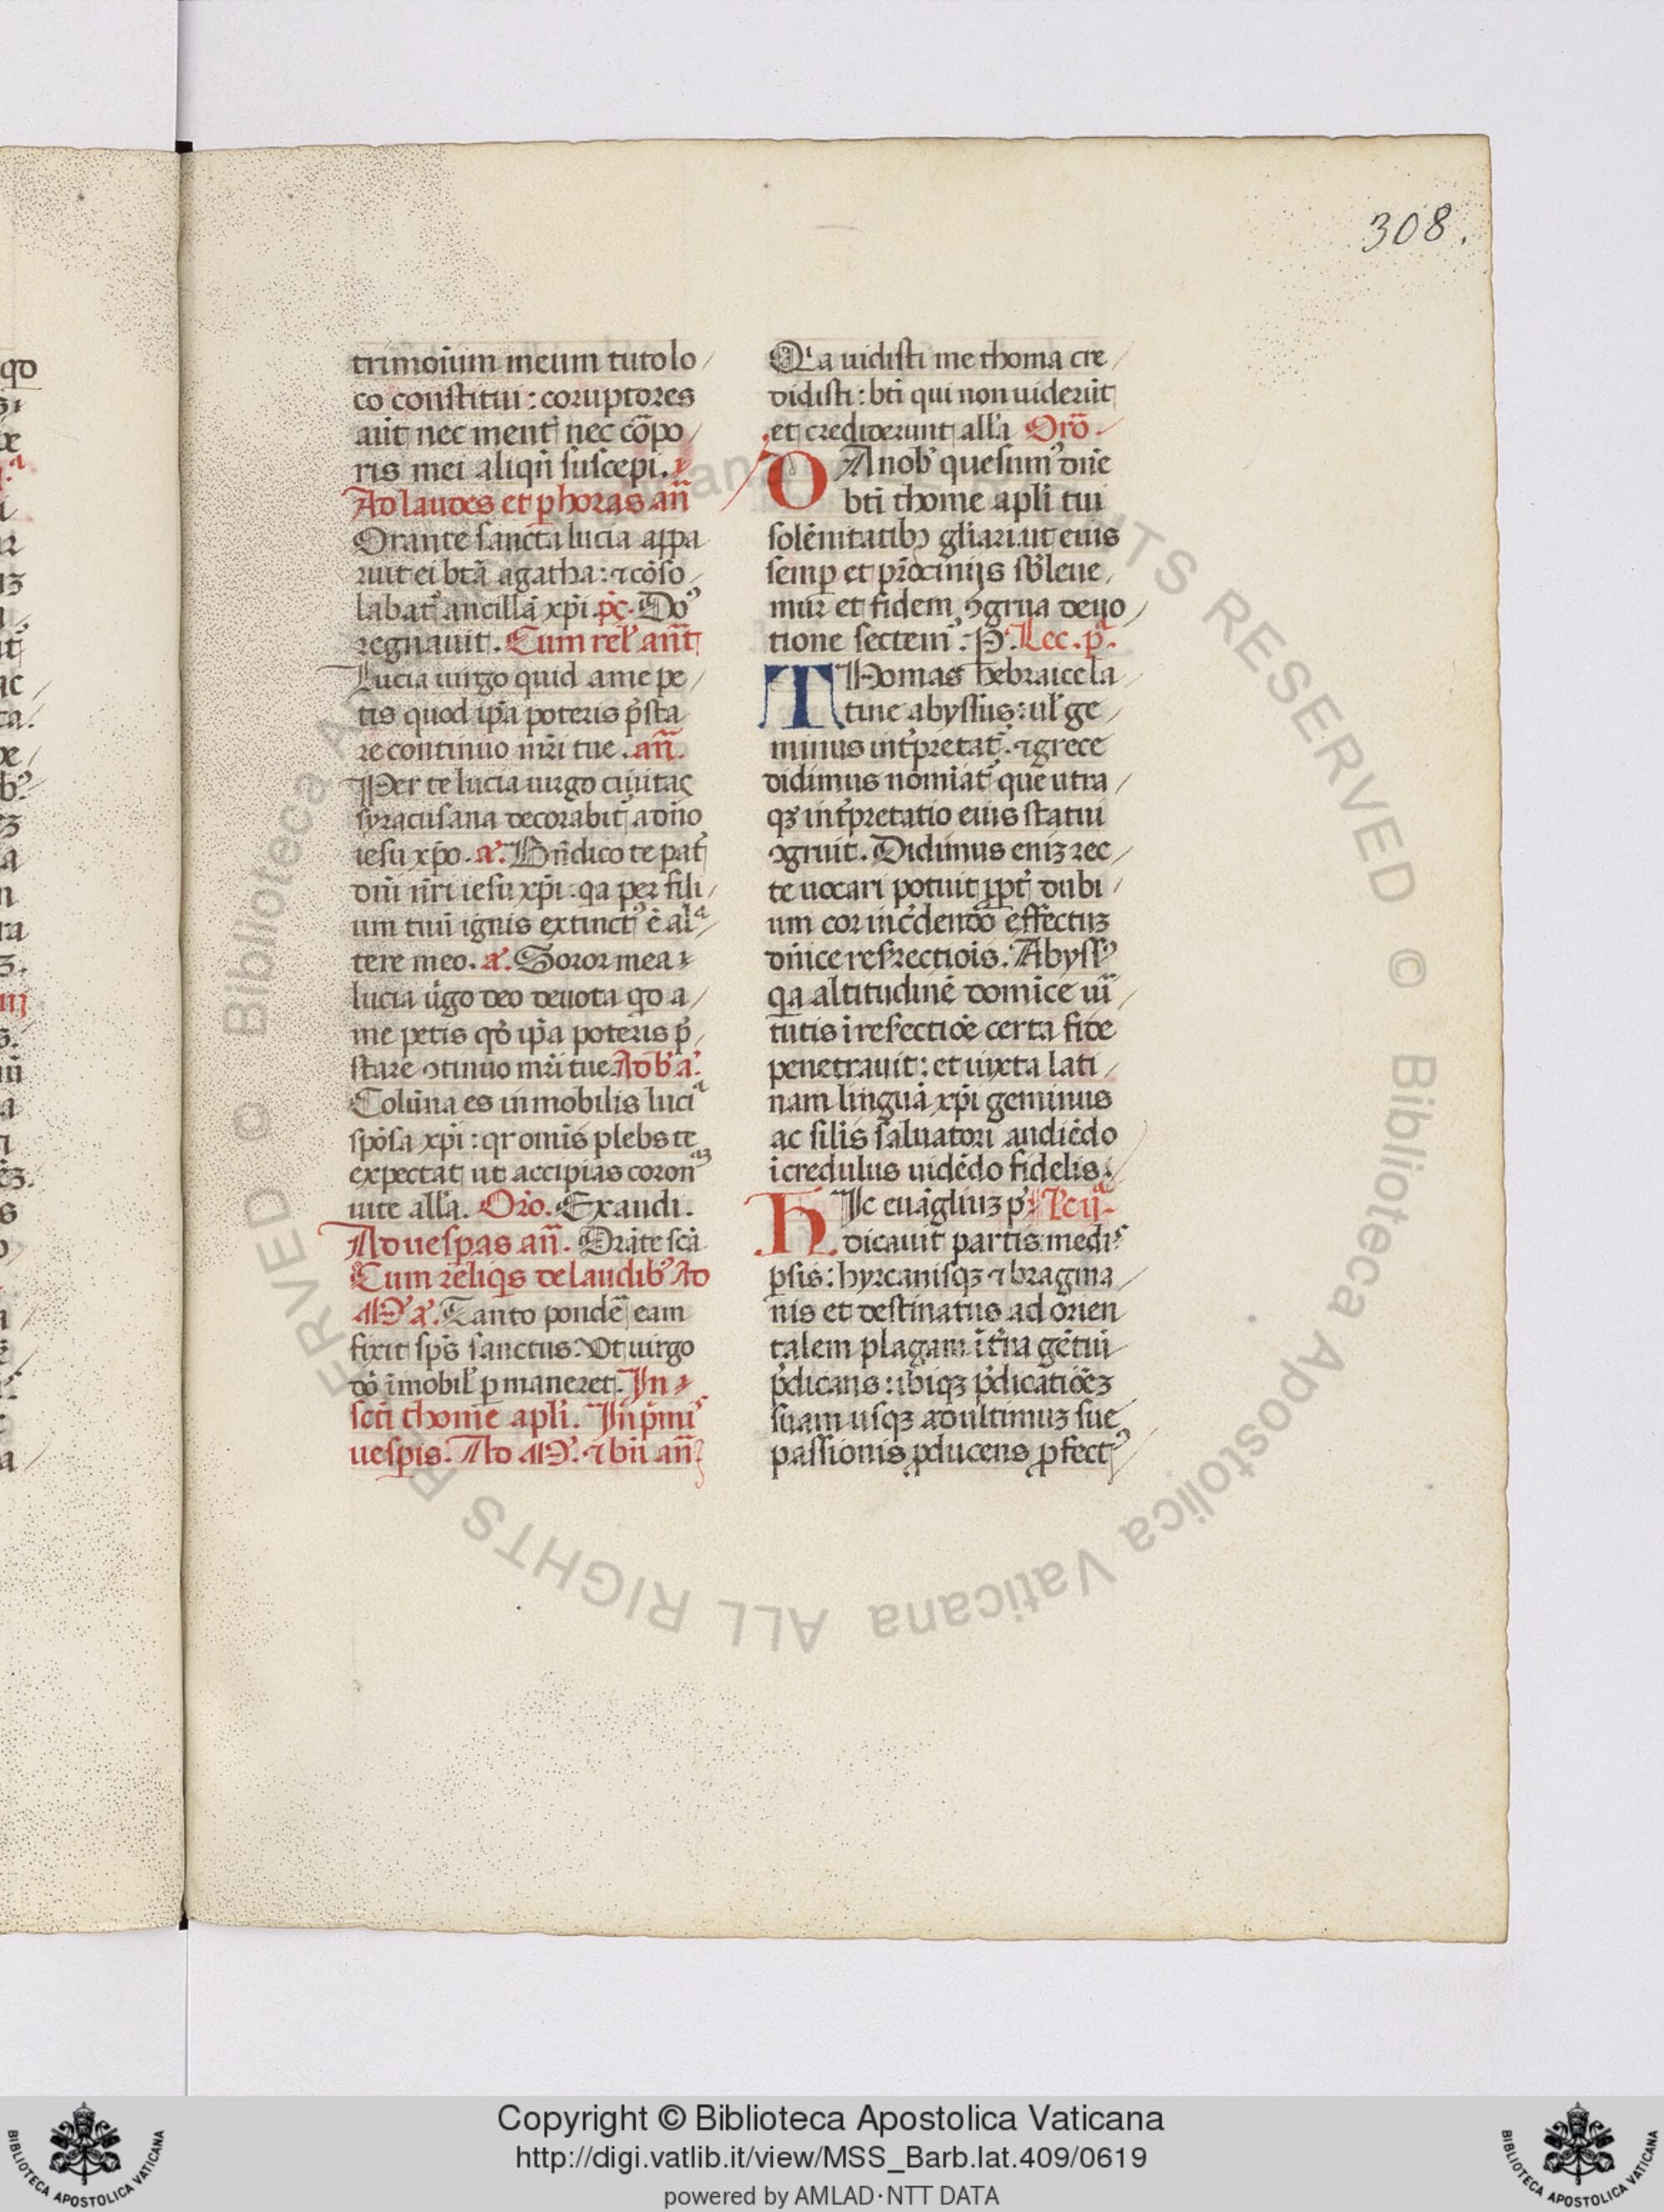 308.
trimoīum meum tuto lo
co constitui : coruptores
aūt nec ment᷑ nec cōpo
ris mei aliqn̄ suscepi.
Ad laudes et p horas an̄
Orante sancta lucia appa
ruit ei btā agatha : ⁊ cōso
labat᷑ ancillā xp̄i. pc̄. Do᷒
regnauit. Cum rel᷑ ant̄
Lucia uirgo quid a me pe
tis quod ip̄a poteris p̄sta
re continuo mr̄i tue. an̄.
Per te lucia uirgo ciuitas
syracusana decorabit᷑ a dn̄o
iesu xp̄o. a᷑. Bn̄dico te pat᷑
dn̄i nr̄i iesu xp̄i. qa per fili
um tuū ignis extinct᷒ ē a lᵃ
tere meo. a᷑. Soror mea
lucia u̇go deo deuota qd a
me petis qd̄ ip̄a poteris p̄
stare ↄtinuo mr̄i tue. Ad b᷑ a᷑.
Colūna es inmobilis luciᵃ
spōsa xp̄i : qr omīs plebs te
expectat ut accipias coronᵃꝫ
uite all᷑a. Oro. Exaudi.
Ad uesp̱as an̄. Orāte scā
Cum reliq̇s de laudib᷒ Ad
M᷑ a᷑. Tanto pondē eam
fixit sp̄s sanctus. Vt uirgo
dō īmobil᷑ p maneret. In
scti thome apl̄i. In p̄mi᷒
uesp̱is. Ad M᷑. ⁊ bn̄ an̄
Qia uidisti me thoma cre
didisti : bt̄i qui non uiderūt
et crediderunt all᷑a Orō
DA nob᷒ quesum᷒ dn̄e
bt̄i thome apl̄i tui
solēnitatibꝫ gl̄iari. ut eius
semp et pr̄ocinijs sb̄leue
mur et fidem ↄgrua deuo
tione sectem᷒. P. Lec. pᵃ.
THomas hebraice la
tine abyssus : ul᷑ ge
minus int᷑pretat᷑. ⁊ grece
didimus nomīat᷑ que utra
qꝫ int᷑pretatio eius statui
ↄgruit. Didimus eniꝫ rec
te uocari potuit ꝓpt᷑ dubi
um cor inc᷑dendō effectuꝫ
dn̄ice resr̄rectiōis. Abyss᷒
qa altitudinē domīce uir̄
tutis ī refectiōe certa fide
penetrauit : et iuxta lati
nam linguā xp̄i geminus
ac sil̄is saluatori audiēdo
īcredulus uidēdo fidelis.
HIc euāgliuꝫ p᷑ Lc ijᵃ
dicauit partis mediˢ
psis : hyrcanisqꝫ ⁊ bragma
nis et destinatus ad orien
talem plagam īt᷑na gētiū
p̄dicans : ubiqꝫ p̄dicatiōēꝫ
suam usqꝫ ad ultimuꝫ sue
passionis ꝓducens ꝓfect᷒
Copyright © Biblioteca Apostolica Vaticana
http://digi.vatlib.it/view/MSS_Barb.lat.409/0619
powered by AMLAD·NTT DATA